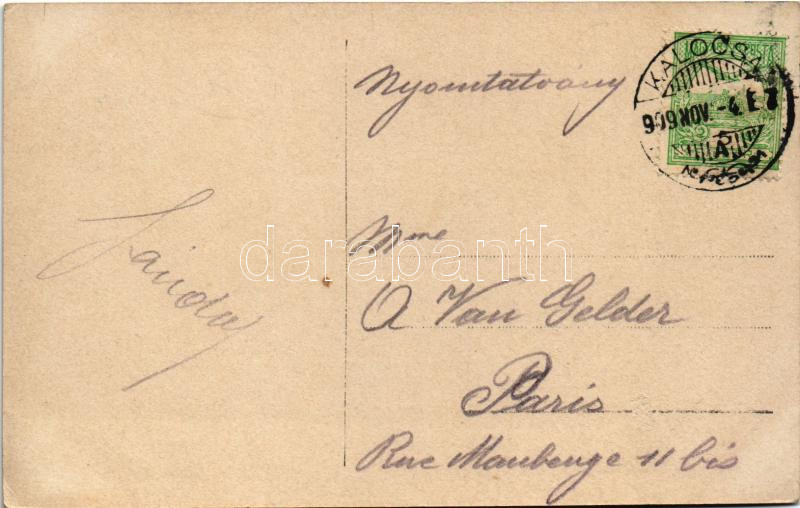 Nyomtatvány
KALOCSA
909 NOV. -4. E 7
A
Mme
A Van Gelder
Paris
Rue Maubeuge 11 bis
darabanth